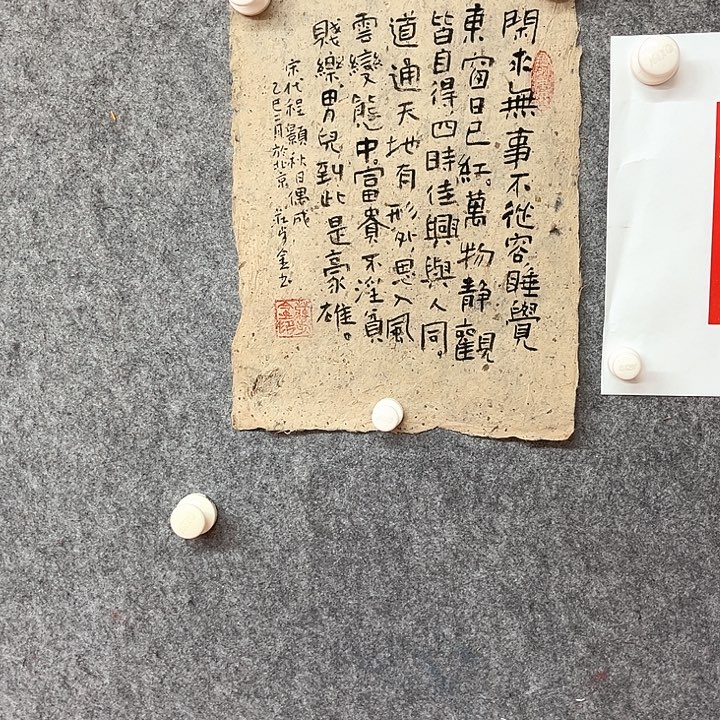 閑來無事不從容睡覺
東窗日已紅萬物静觀
皆自得四時佳興與人同
道通天地有形外思入風
雲變態中富貴不淫貧
賤樂男兒到此是豪雄
宋代程顥秋日偶成
乙巳二月於北京